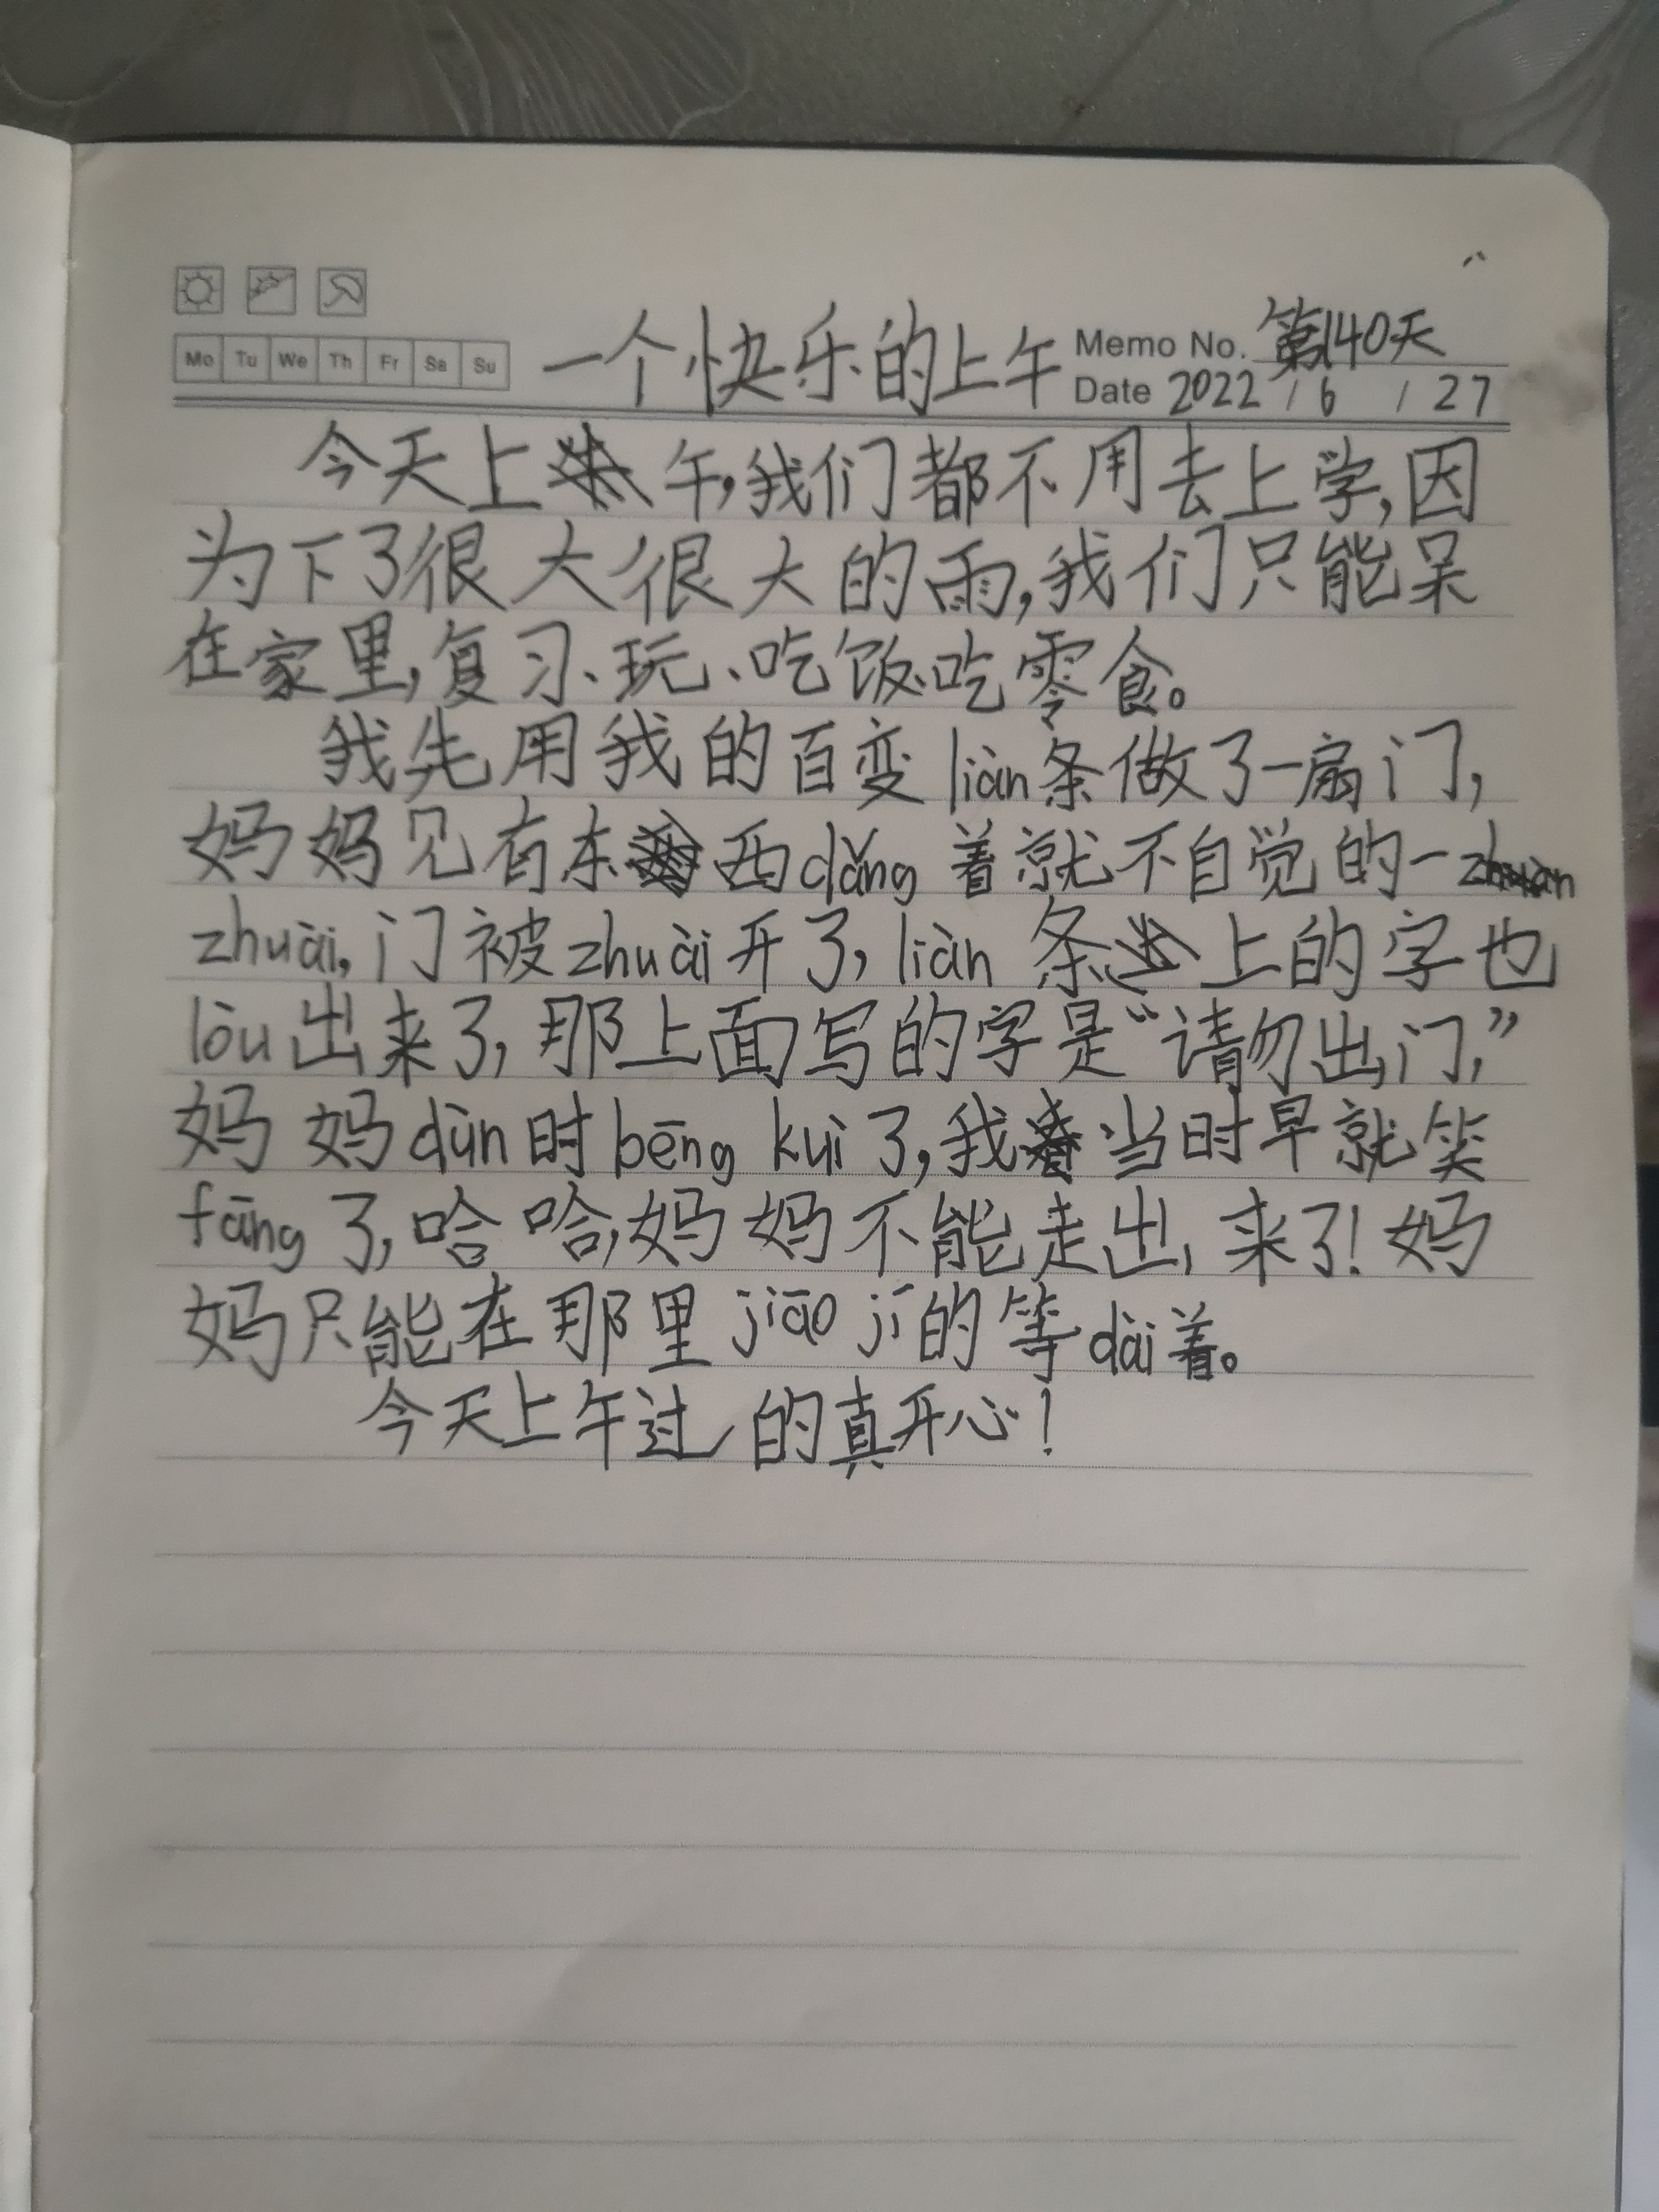 Mo Tu We Th Fr Sa Su
一个快乐的上午
Memo No. 第140天
Date 2022 / 6 / 27
今天上午,我们都不用去上学,因
为下了很大很大的雨,我们只能呆
在家里,复习、玩、吃饭、吃零食。
我先用我的百变liàn条做了一扇门,
妈妈见有东西dǎng着就不自觉的一
zhuài,门被zhuài开了,liàn条上的字也
lòu出来了,那上面写的字是“请勿出门,”
妈妈dùn时bēng kuì了,我当时早就笑
fāng了,哈哈,妈妈不能走出来了!妈
妈只能在那里jiāo jí的等dài着。
今天上午过的真开心!